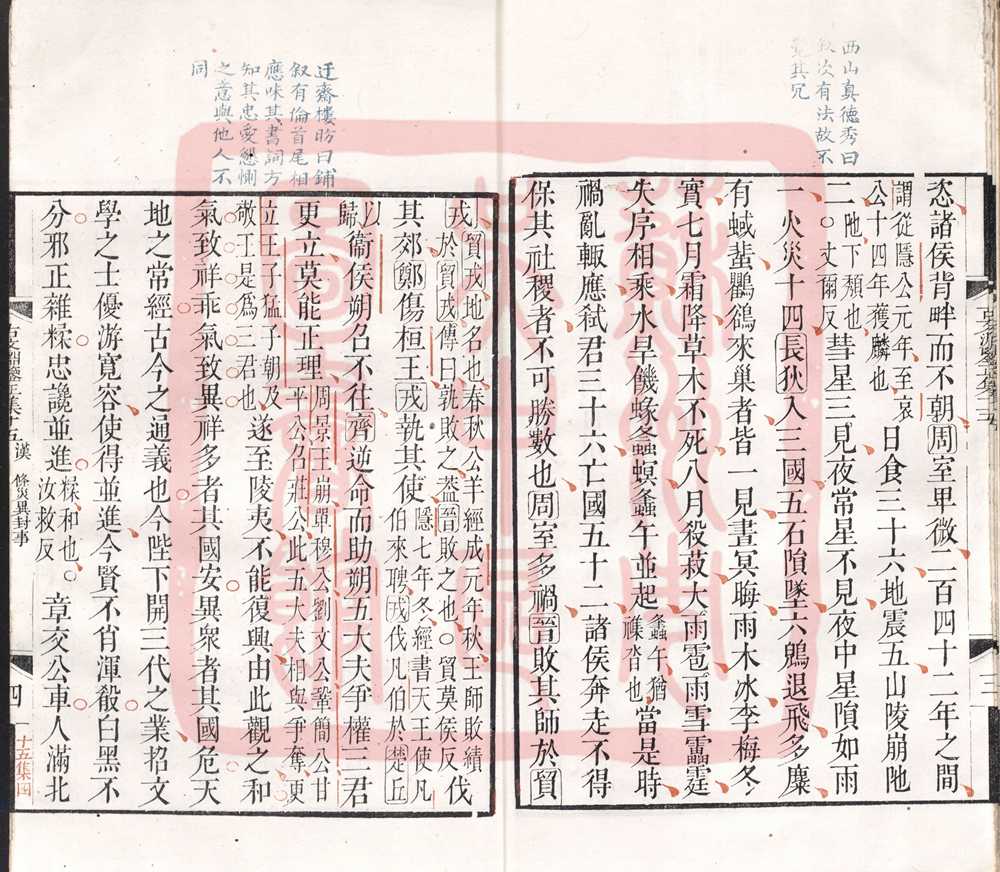 西山真德秀曰
叙次有法故不
覺其冗
恣諸侯背畔而不朝周室卑微二百四十二年之間
謂從隱公元年至哀
公十四年獲麟也
日食三十六地震五山陵崩阤
二
阤下頹也
○丈爾反
彗星三見夜常星不見夜中星隕如雨
一火災十四長狄入三國五石隕墜六鶂退飛多麋
有蜮蜚鸜鵒來巢者皆一見晝冥晦雨木冰李梅冬
實七月霜降草木不死八月殺菽大雨雹雨雪靁霆
失序相乘水旱饑蝝螽螟螽午並起
螽午猶
襍沓也
當是時
禍亂輒應弑君三十六亡國五十二諸侯奔走不得
保其社稷者不可勝數也周室多禍晉敗其師於貿
迂齋樓昉曰鋪
叙有倫首尾相
應味其書詞方
知其忠愛懇惻
之意與他人不
同
戎
貿戎地名也春秋公羊經成元年秋王師敗績
於貿戎傳曰孰敗之蓋晉敗之也○貿莫侯反
伐
其郊鄭傷桓王戎執其使
隱七年冬經書天王使凡
伯來聘戎伐凡伯於楚丘
以
歸
衞侯朔召不往齊逆命而助朔五大夫爭權三君
更立莫能正理
周景王崩單穆公劉文公鞏簡公甘
平公召莊公此五大夫相與爭奪更
立王子猛子朝及
敬王是爲三君也
遂至陵夷不能復興由此觀之和
氣致祥乖氣致異祥多者其國安異衆者其國危天
地之常經古今之通義也今陛下開三代之業招文
學之士優游寬容使得並進今賢不肖渾殽白黑不
分邪正雜糅忠讒並進
糅和也○
汝救反
章交公車人滿北
古文淵鑒正集十五 漢 條災異封事
四
十五集四